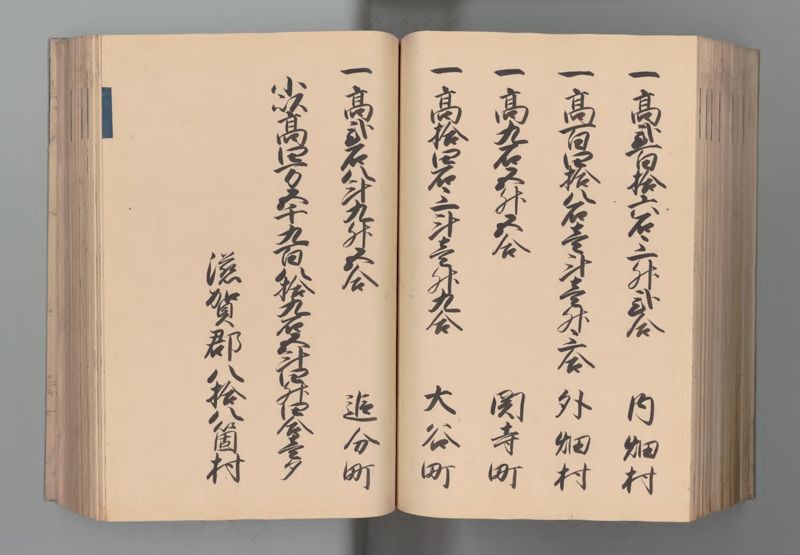 一高弐百拾六石三升弐合 内畑村
一高百四拾八石壱斗壱升三合 外畑村
一高九石五升五合 関寺町
一高拾四石三斗壱升九合 大谷町
一高弐石八斗九升五合 追分町
小以高四万五千九百拾九石五斗四升四合壱夕
滋賀郡八拾八箇村